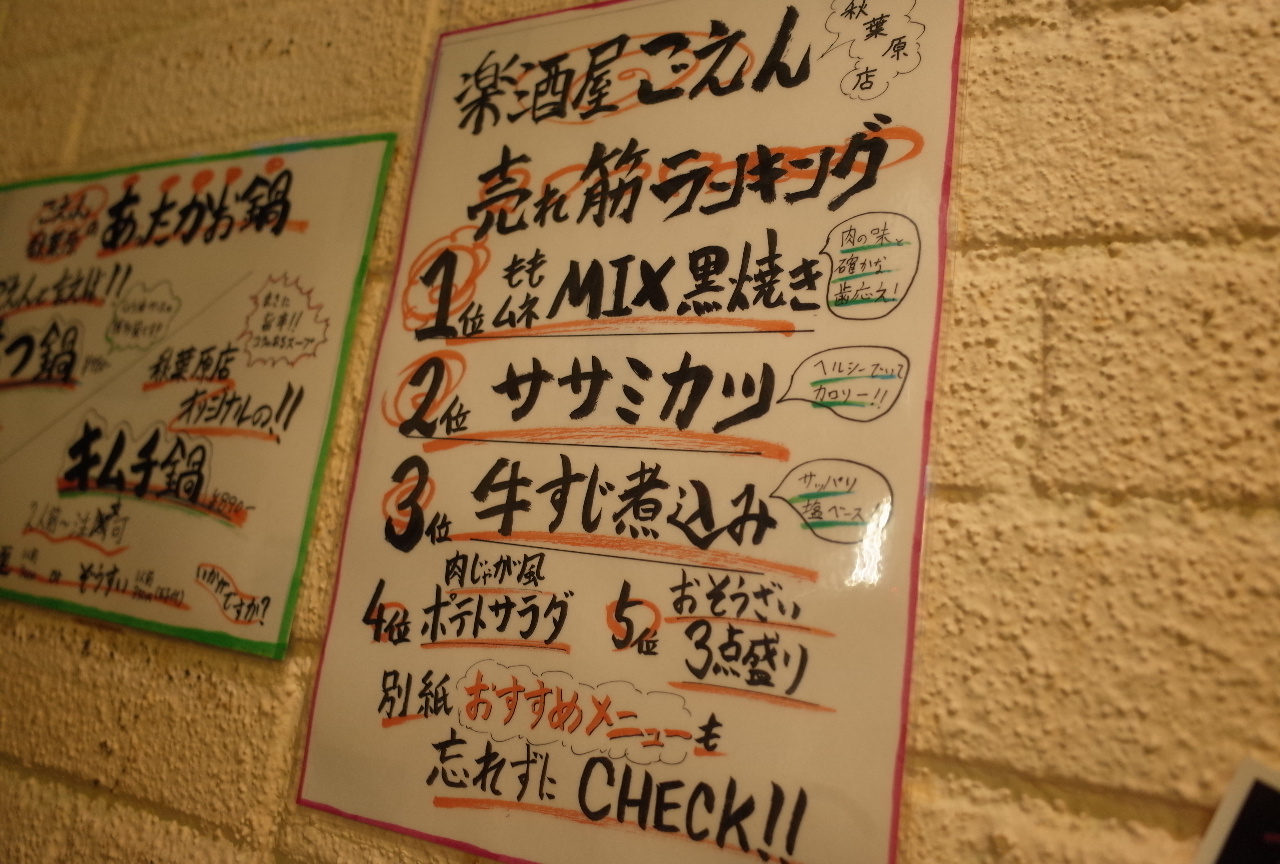 楽酒屋ごえん
秋葉原店
売れ筋ランキング
1位 ももムネMIX黒焼き
肉の味と
確かな
歯応え!
2位 ササミカツ
ヘルシーでいて
カロリー!!
3位 牛すじ煮込み
サッパリ
塩ベース
4位 肉じゃが風
ポテトサラダ
5位 おそうざい
3点盛り
別紙おすすめメニューも
忘れずにCHECK!!
ごえん
秋葉原の
あたたかお鍋
つ鍋
秋葉原店
オリジナルの!!
キムチ鍋 ¥890-
2人前~注文可
or ぞうすい
いかがですか?